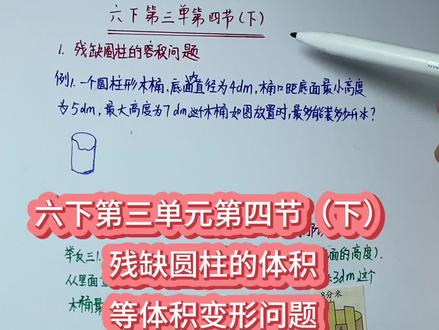 六下第三单第四节(下)
1. 残缺圆柱的容积问题
例1.一个圆柱形木桶,底面直径为4dm,桶口距底面最小高度
为5dm,最大高度为7dm这个木桶如图放置时,最多能装多少升水?
六下第三单元第四节(下)
残缺圆柱的体积
等体积变形问题
举一反三1.
面的高度).
从里面
3dm这个
木桶最
8分米